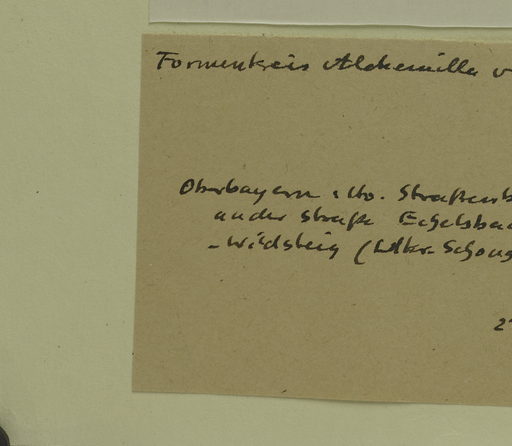 Formenkreis Alchemilla v
Oberbayern : Straßen
an der Straße Echelsbac
- Wildsteig (Ldkr. Schong
2